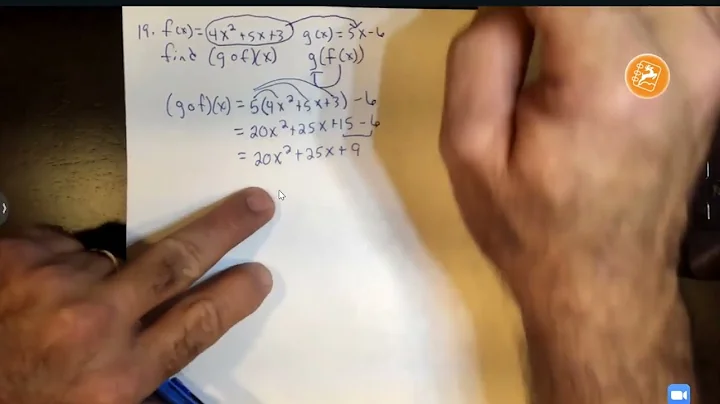 19. f(x) = 4x² + 5x + 3   g(x) = 5x - 6
find (g o f)(x)   g(f(x))
(g o f)(x) = 5(4x² + 5x + 3) - 6
= 20x² + 25x + 15 - 6
= 20x² + 25x + 9